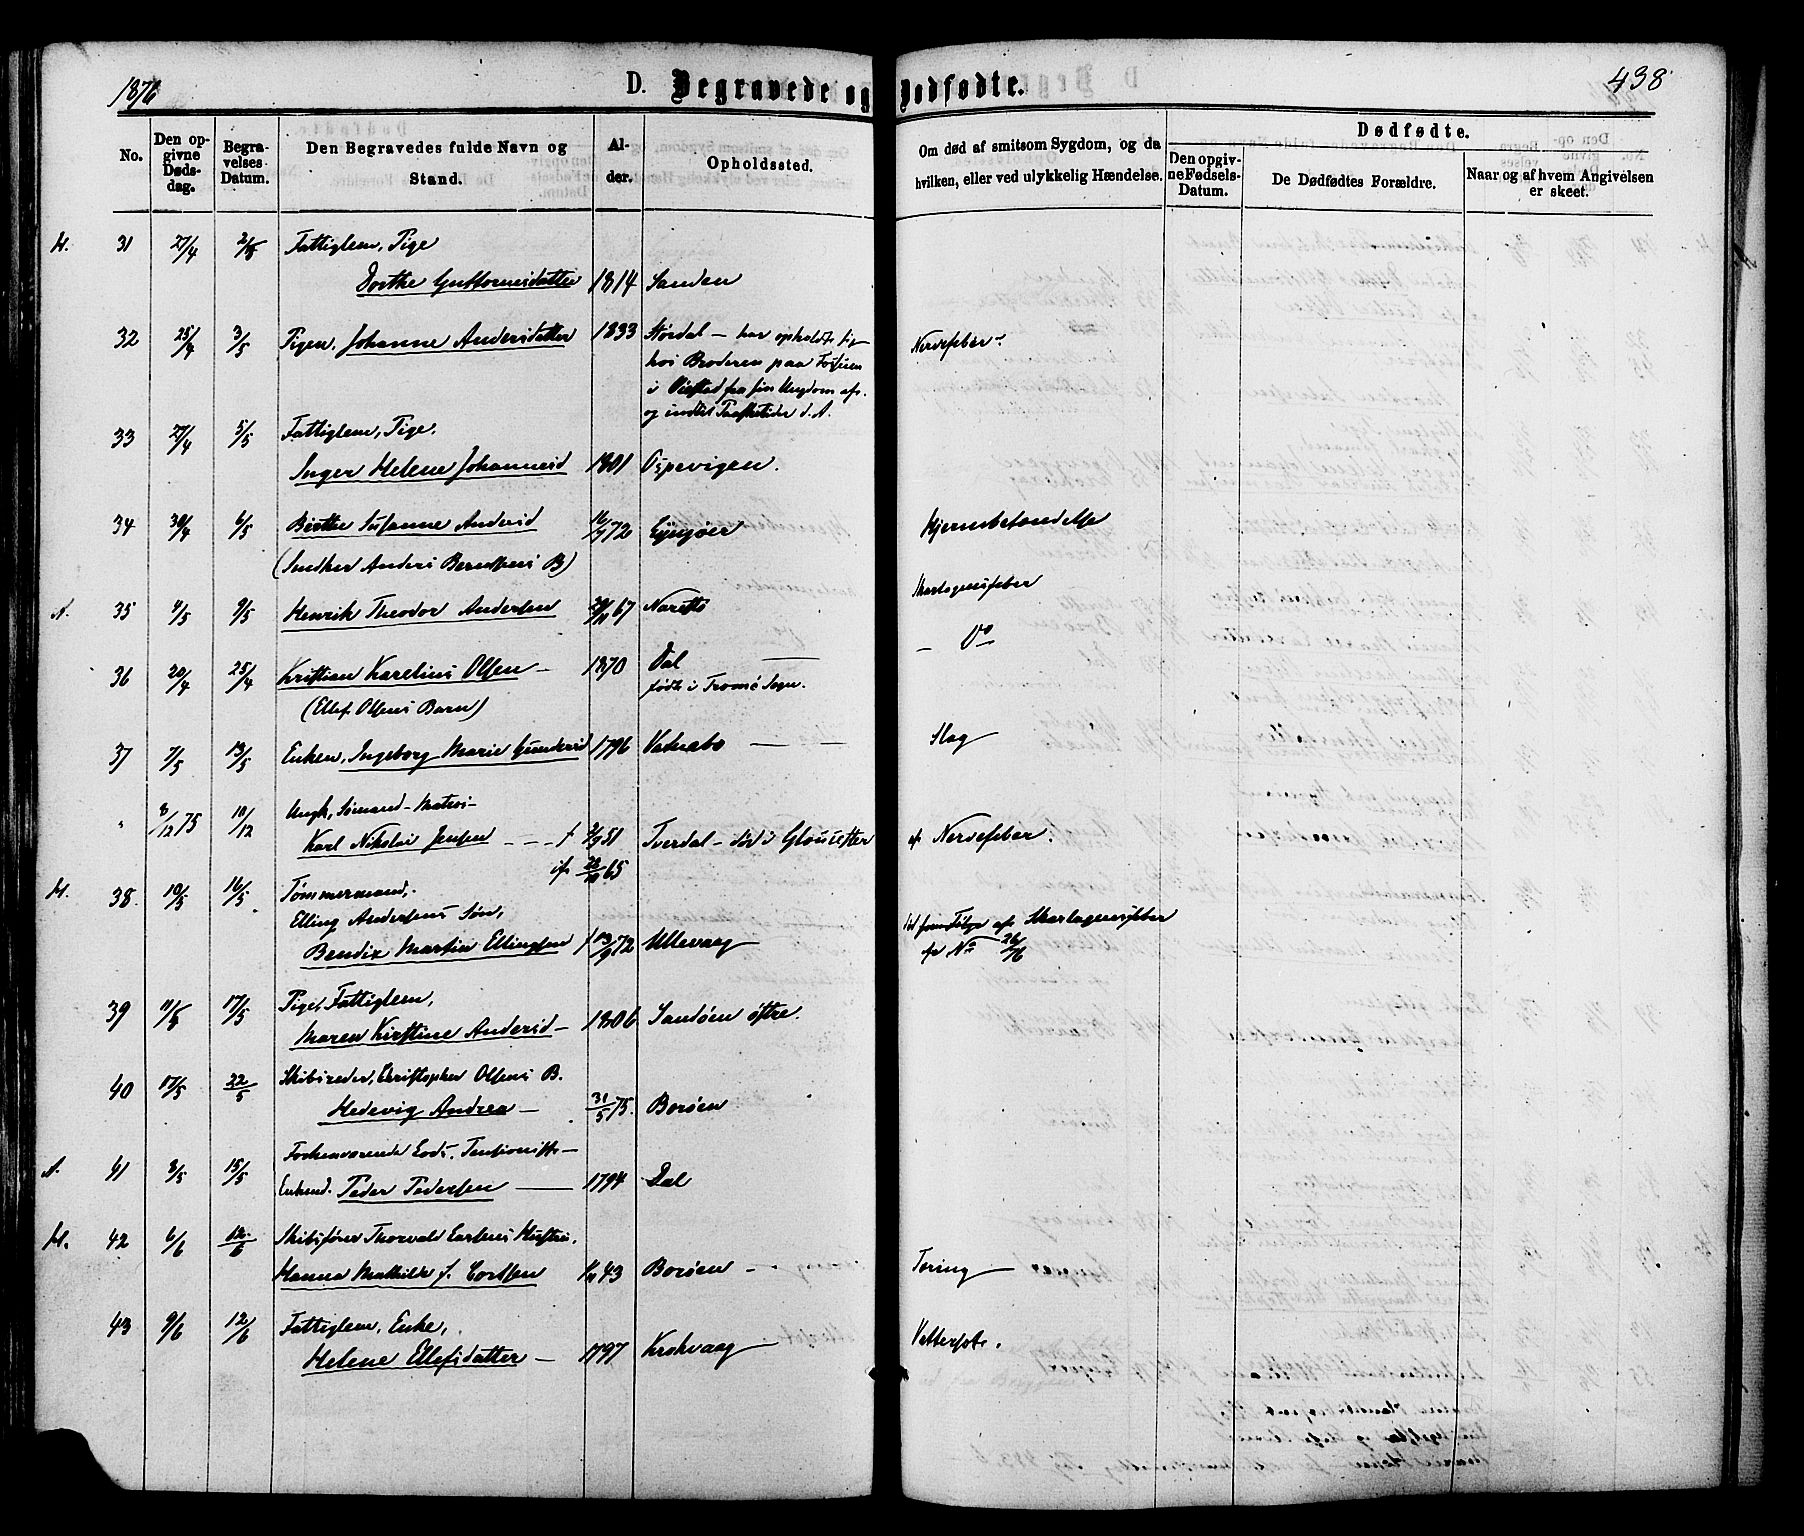 1876 D. Begravede og Dødfødte. 438
No. Den opgivne Dødsdag. Begravelses Datum. Den Begravedes fulde Navn og Stand. Alder. Opholdssted. Om død af smitsom Sygdom, og da hvilken, eller ved ulykkelig Hændelse. Dødfødte. Den opgivne Fødsels-Datum. De Dødfødtes Forældre. Naar og af hvem Angivelsen er skeet.
H. 31 27/4 2/5 Fattiglem, Pige
Dorthe Guttormsdatter 1814 Sanden
32 25/4 3/5 Pigen, Johanne Andersdatter 1833 Stordal – har opholdt sig Nervefeber.
hos Broderen paa
i fra sin Ungdom af.
og indtil d. A.
33 27/4 5/5 Fattiglem, Pige.
Inger Helene Johannesd 1801 Espevigen.
34 30/4 6/5 Birthe Susanne Andersd 16/7 72 Gjesøer Hjernebetændelse
(Snedker Anders Berntsens B)
Skarlagensfeber
A. 35 4/5 9/5 Henrik Theodor Andersen 67 Narestø
– Do
36 20/4 25/4 Kristian Karelius Olsen – 1870 Dal
(Ellef Olsens Barn) født i Tromø Sogn.
37 7/5 13/5 Enken, Ingeborg Marie Gundersd 1796 Vatnebo — — Slag
" 8/12 75 10/12 Ungk, Sømand – Matros –
Karl Nikolai Jensen – – – f 51 Tverdal – død i Gloucester af Nervefeber.
if. 65
H. 38 10/5 16/5 Tømmermand,
Elling Andersens Søn,
Bendix Martin Ellingsen f 13/9 72 Ullevaag død som Følge af Skarlagensfeber
cfr No 26/76
39 11/5 17/5 Pige, Fattiglem,
Maren Kirstine Andersd – 1806 Sandøen østre.
40 17/5 22/5 Skibsreder, Christopher Olsens B.
Hedevig Andrea – 31/5 75. Borøen
A. 41 8/5 15/5 Forhenværende Lods, Pensionist –
Enkemd. Peder Pedersen — 1794 Dal
H. 42 6/6 12/6 Skibsfører Thorvald Cortsens Hustru,
Hanna Mathilde f. Cortsen 43 Borøen – Tæring
43 9/6 12/6 Fattiglem, Enke,
Helene Ellefsdatter – 1797 Krokvaag Vattersot.